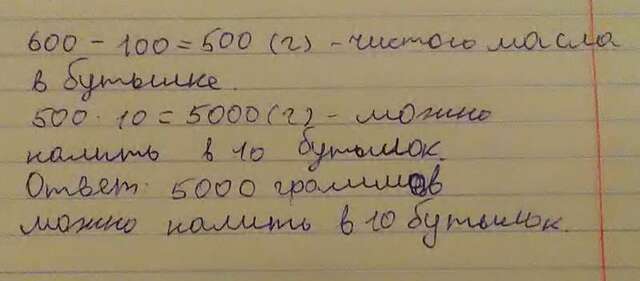 600 - 100 = 500 (г) - чистого масла
в бутылке.
500 · 10 = 5000 (г) - можно
налить в 10 бутылок.
Ответ: 5000 граммов
можно налить в 10 бутылок.